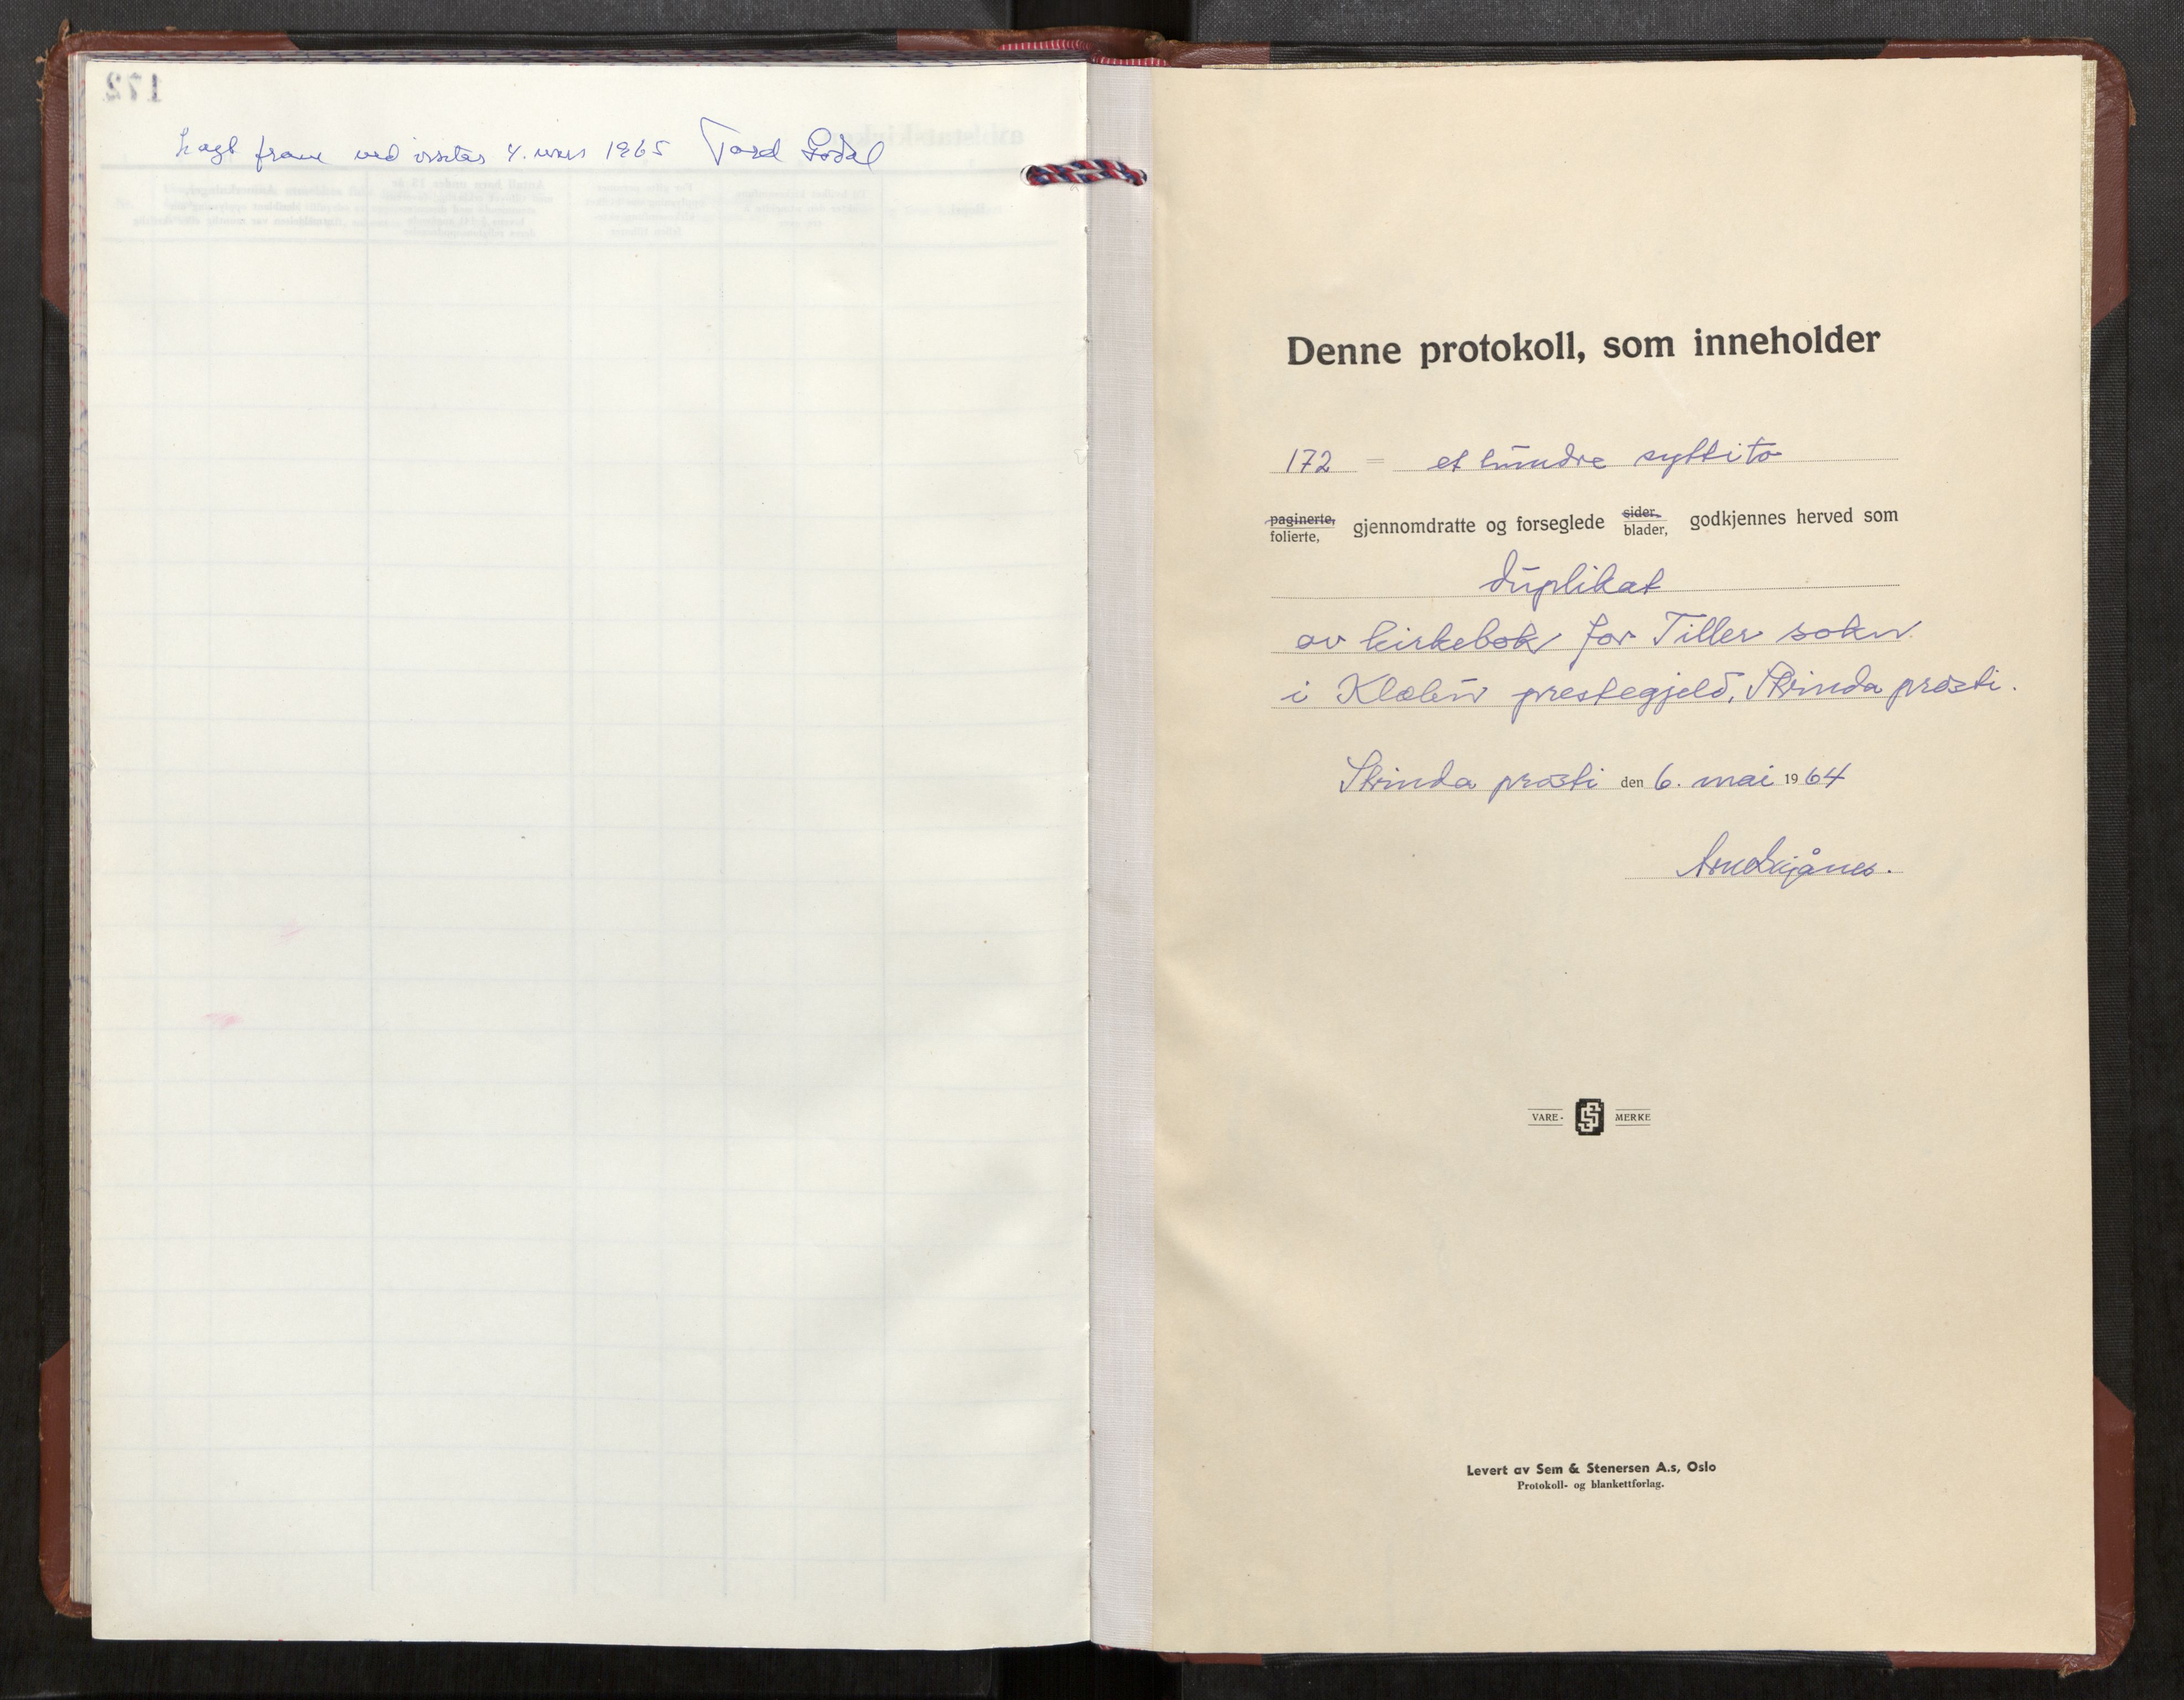 172
Lagt fram ved visitas 4. mars 1965 Tord Godal
Denne protokoll, som inneholder
172 = et hundre syttito
paginerte, folierte, gjennomdratte og forseglede sider, blader, godkjennes herved som
duplikat
av kirkebok for Tiller sokn
i Klæbu prestegjeld, Strinda prosti.
Strinda prosti den 6. mai 1964
VARE- MERKE
Levert av Sem & Stenersen A.s, Oslo
Protokoll- og blankettforlag.